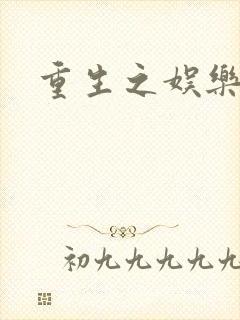 重生之娱樂
初九九九九九